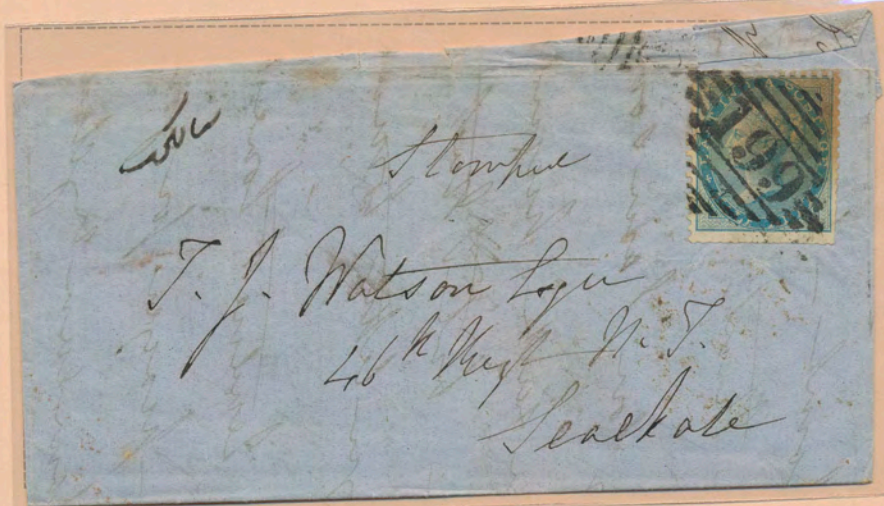 Stamped
199
T. J. Watson Esqre
46th Regt N. I.
Sealkote